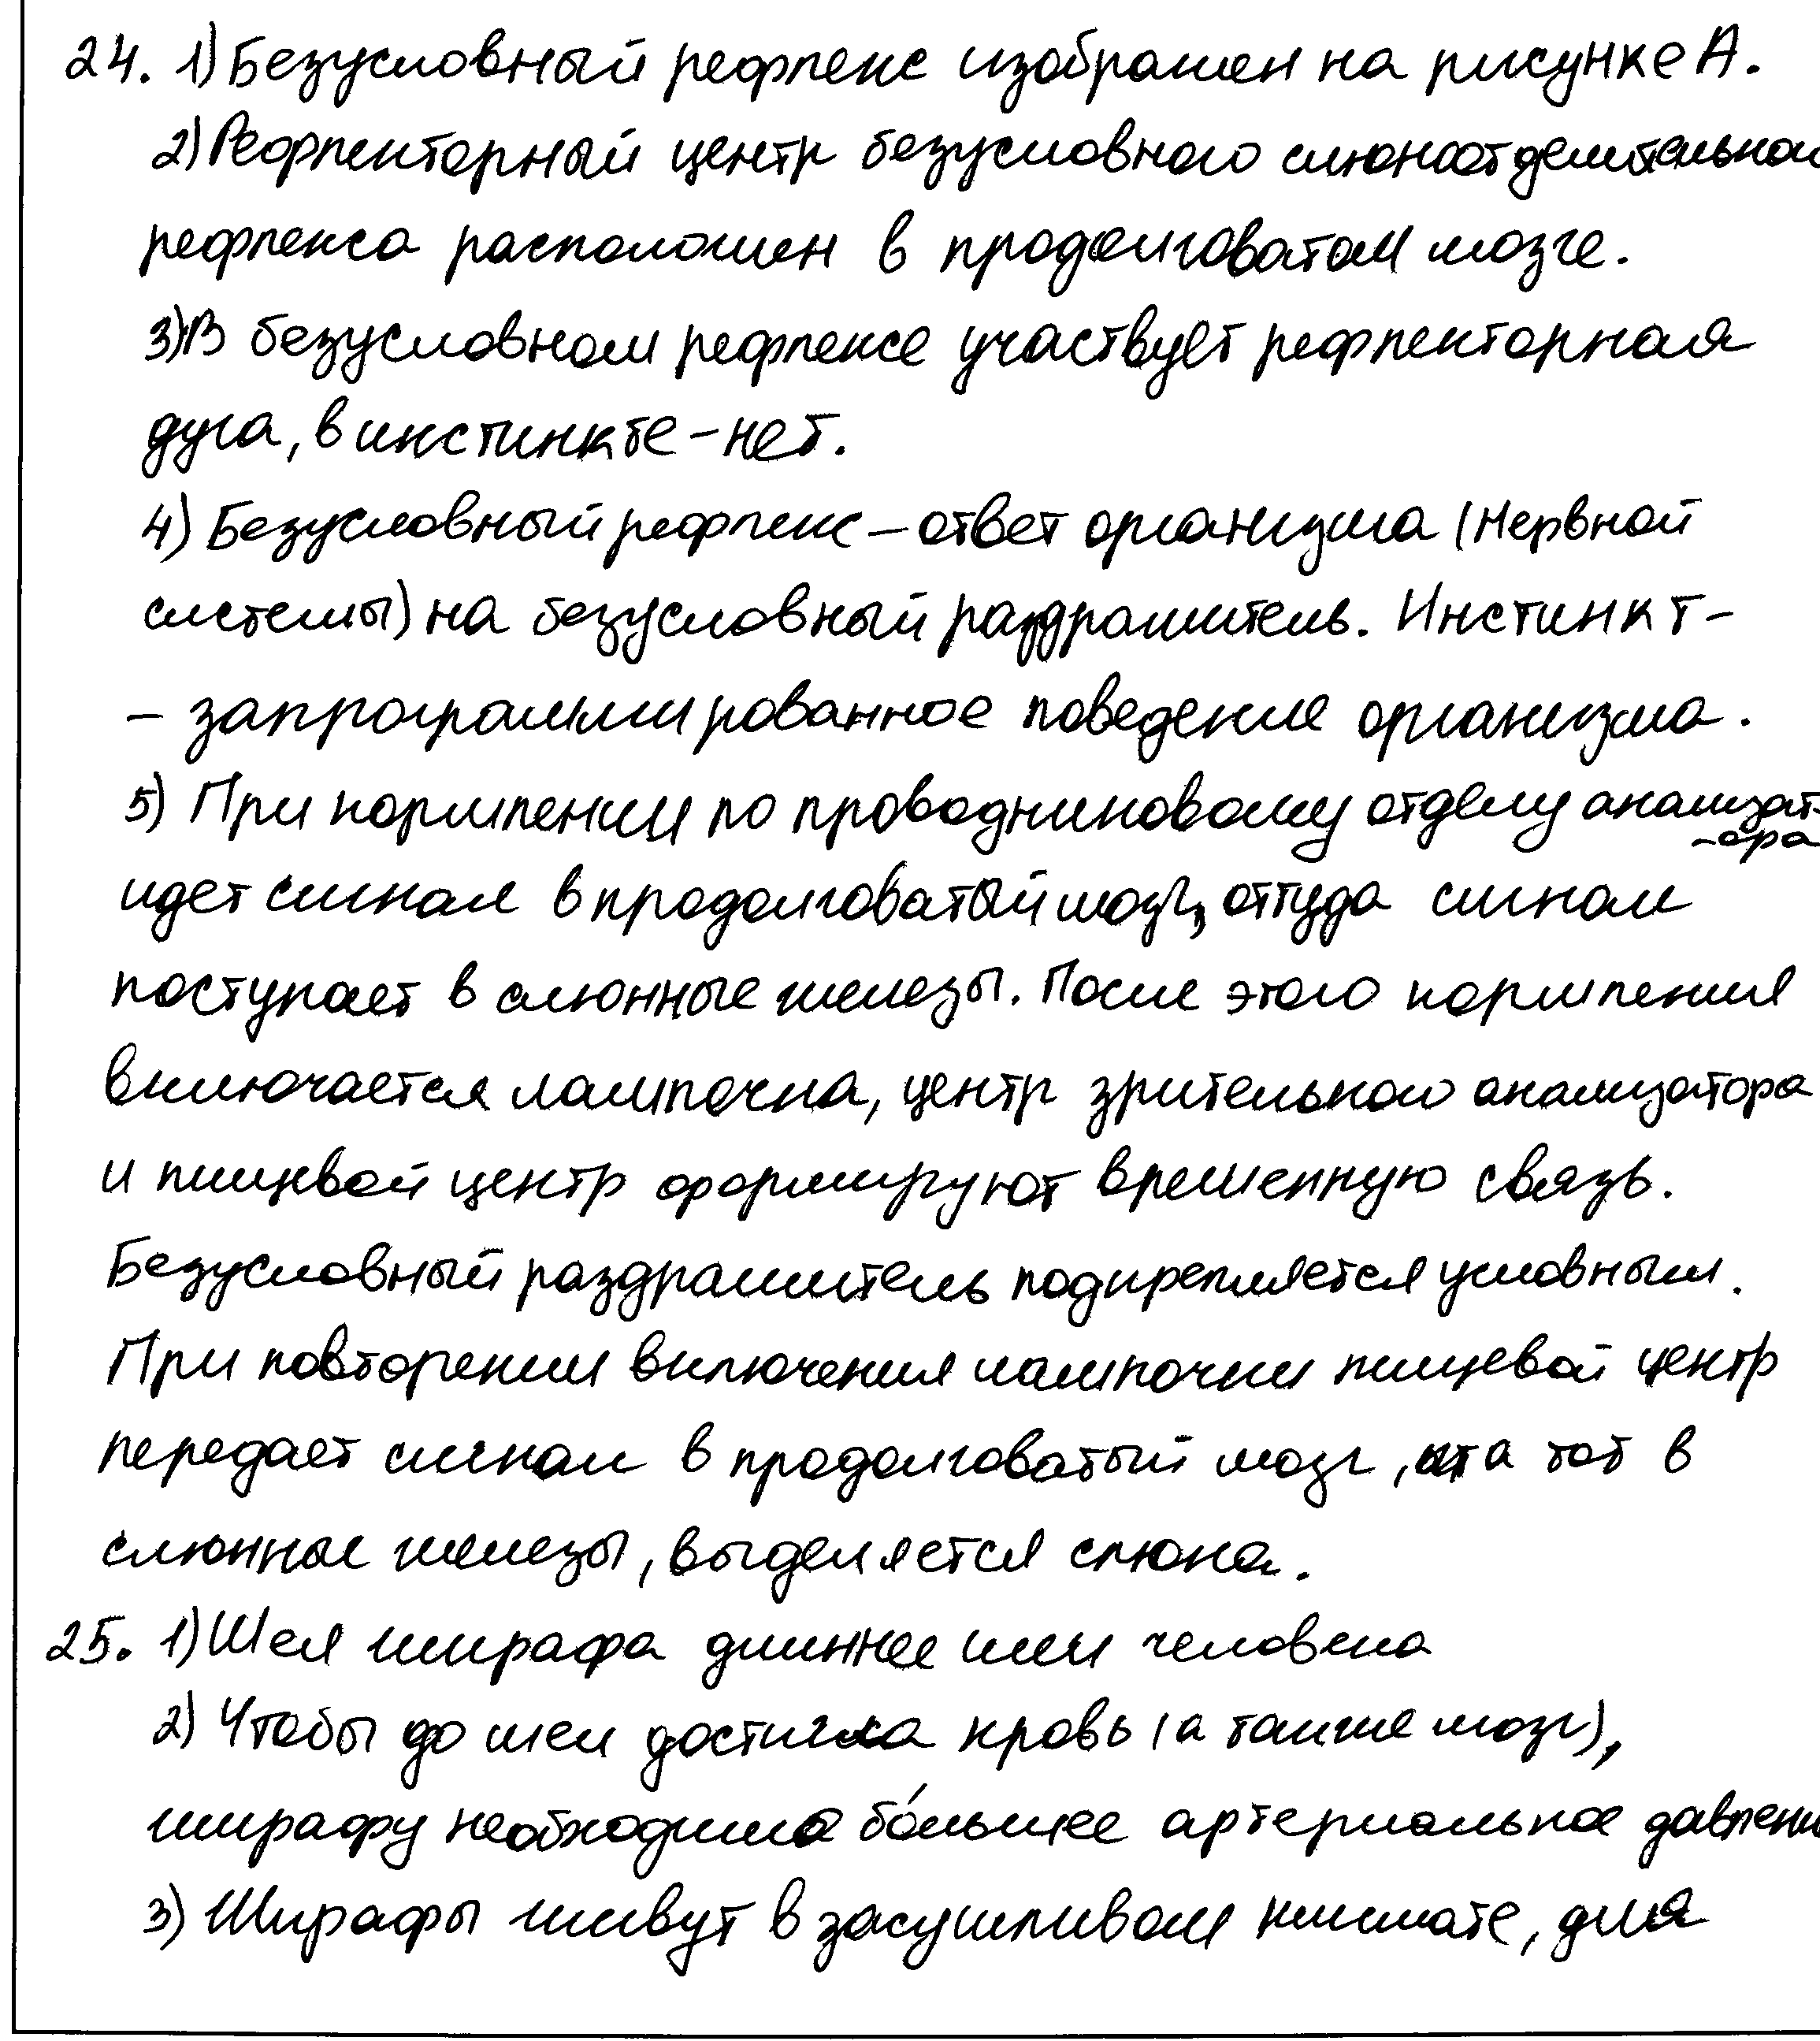 24. 1) Безусловный рефлекс изображен на рисунке А.
2) Рефлекторный центр безусловного слюноотделительного
рефлекса расположен в продолговатом мозге.
3) В безусловном рефлексе участвует рефлекторная
дуга, в инстинкте - нет.
4) Безусловный рефлекс – ответ организма (нервной
системы) на безусловный раздражитель. Инстинкт -
- запрограммированное поведение организма.
5) При кормлении по проводниковому отделу анализат-
-ора
идет сигнал в продолговатый мозг, оттуда сигнал
поступает в слюнные железы. После этого кормления
включается лампочка, центр зрительного анализатора
и пищевой центр формируют временную связь.
Безусловный раздражитель подкрепляется условным.
При повторении включения лампочки пищевой центр
передает сигнал в продолговатый мозг, а тот в
слюнные железы, выделяется слюна.
25. 1) Шея жирафа длиннее шеи человека
2) Чтобы до шеи достигла кровь (а также мозг),
жирафу необходимо бо́льшее артериальное давлени
3) Жирафы живут в засушливом климате, для